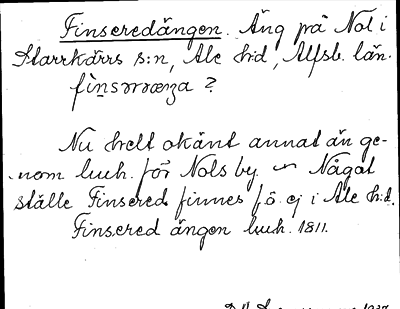 Finseredängen. Äng på Nol i
Starrkärrs s:n, Ale h:d, Älfsb. län.
Nu helt okänt annat än ge-
nom luuh. för Nols by. – Något
ställe Finsered finnes fö. ej i Ale h:d.
Finsered ängen luuh. 1811.